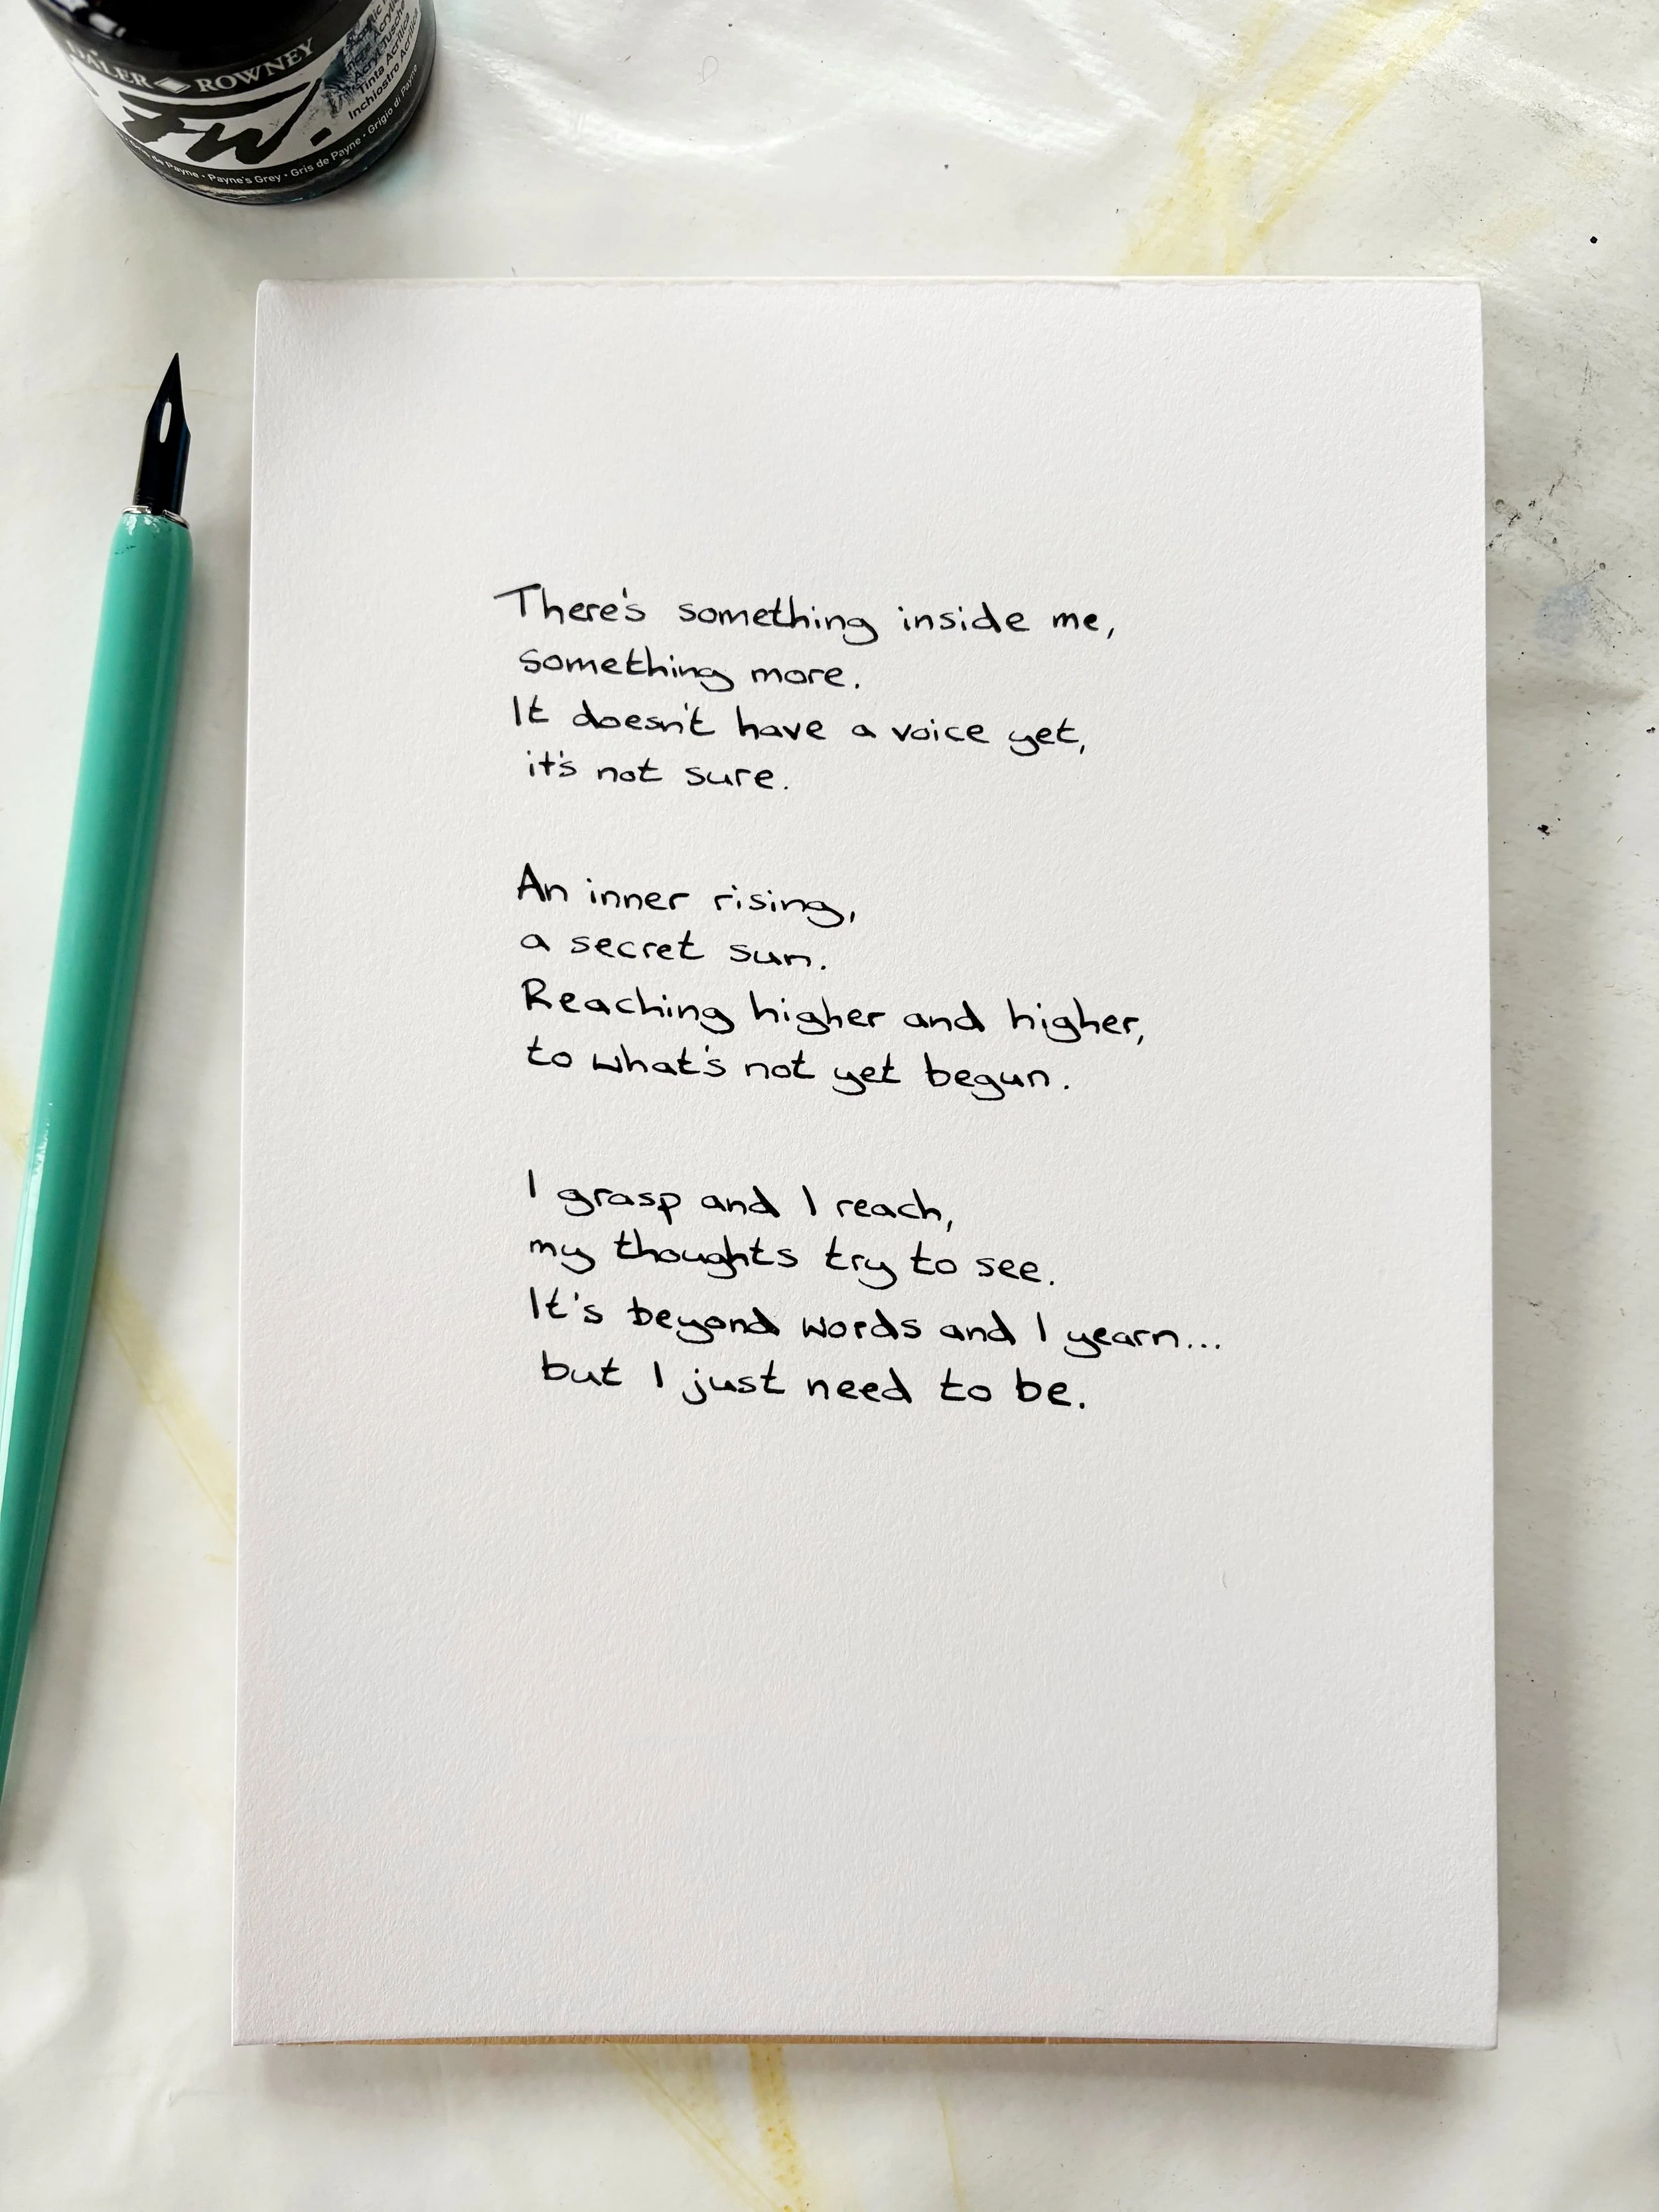 DALER ROWNEY
FW.
Acrylic Tusche
Tinta Acrílica
Inchiostro Acrilico
de Payne • Payne's Grey • Gris de Payne • Grigio di Payne
There's something inside me,
something more.
It doesn't have a voice yet,
it's not sure.
An inner rising,
a secret sun.
Reaching higher and higher,
to what's not yet begun.
I grasp and I reach,
my thoughts try to see.
It's beyond words and I yearn...
but I just need to be.